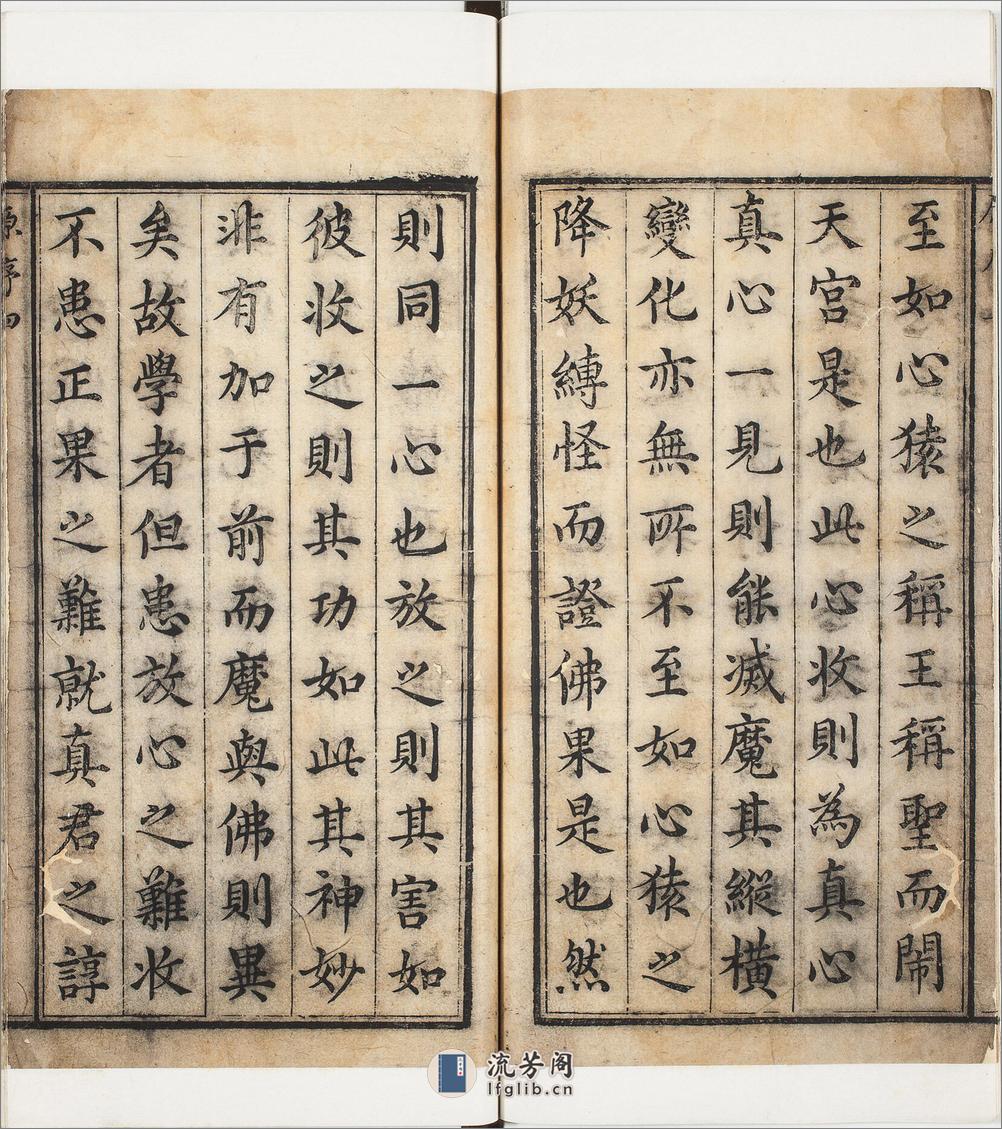 至如心猿之稱王稱聖而鬧
天宮是也此心收則為真心
真心一見則能滅魔其縱橫
變化亦無所不至如心猿之
降妖縛怪而證佛果是也然
則同一心也放之則其害如
彼收之則其功如此其神妙
非有加于前而魔與佛則異
矣故學者但患放心之難收
不患正果之難就真君之諄
原序 四
流芳阁
lfglib.cn